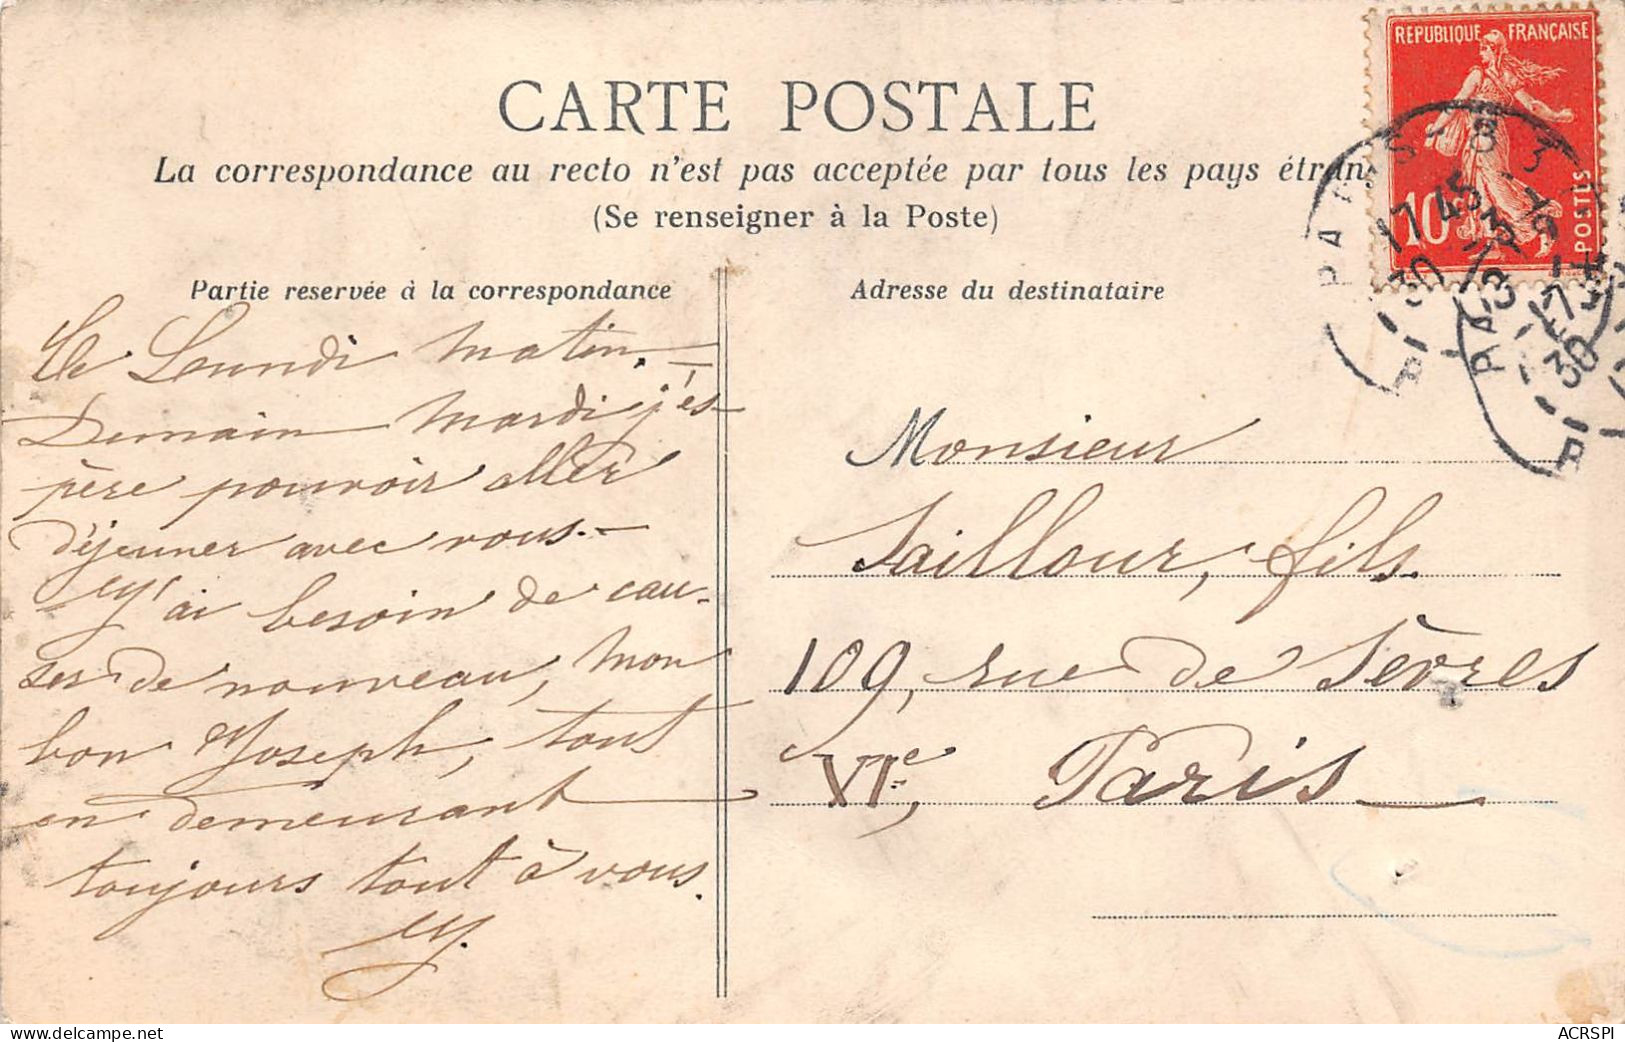 CARTE POSTALE
La correspondance au recto n'est pas acceptée par tous les pays étran
(Se renseigner à la Poste)
Partie reservée à la correspondance
Ce Lundi matin. —
Demain Mardi j'es-
père pouvoir aller
déjeuner avec vous. —
J'ai besoin de cau-
ser de nouveau, mon
bon Joseph, tout
en demeurant
toujours tout à vous.
J.
Adresse du destinataire
Monsieur
Jaillour, fils.
109, rue de Sèvres
VIe, Paris
REPUBLIQUE FRANÇAISE
10c
POSTES
PARIS - 8
17 45
ACRSPI